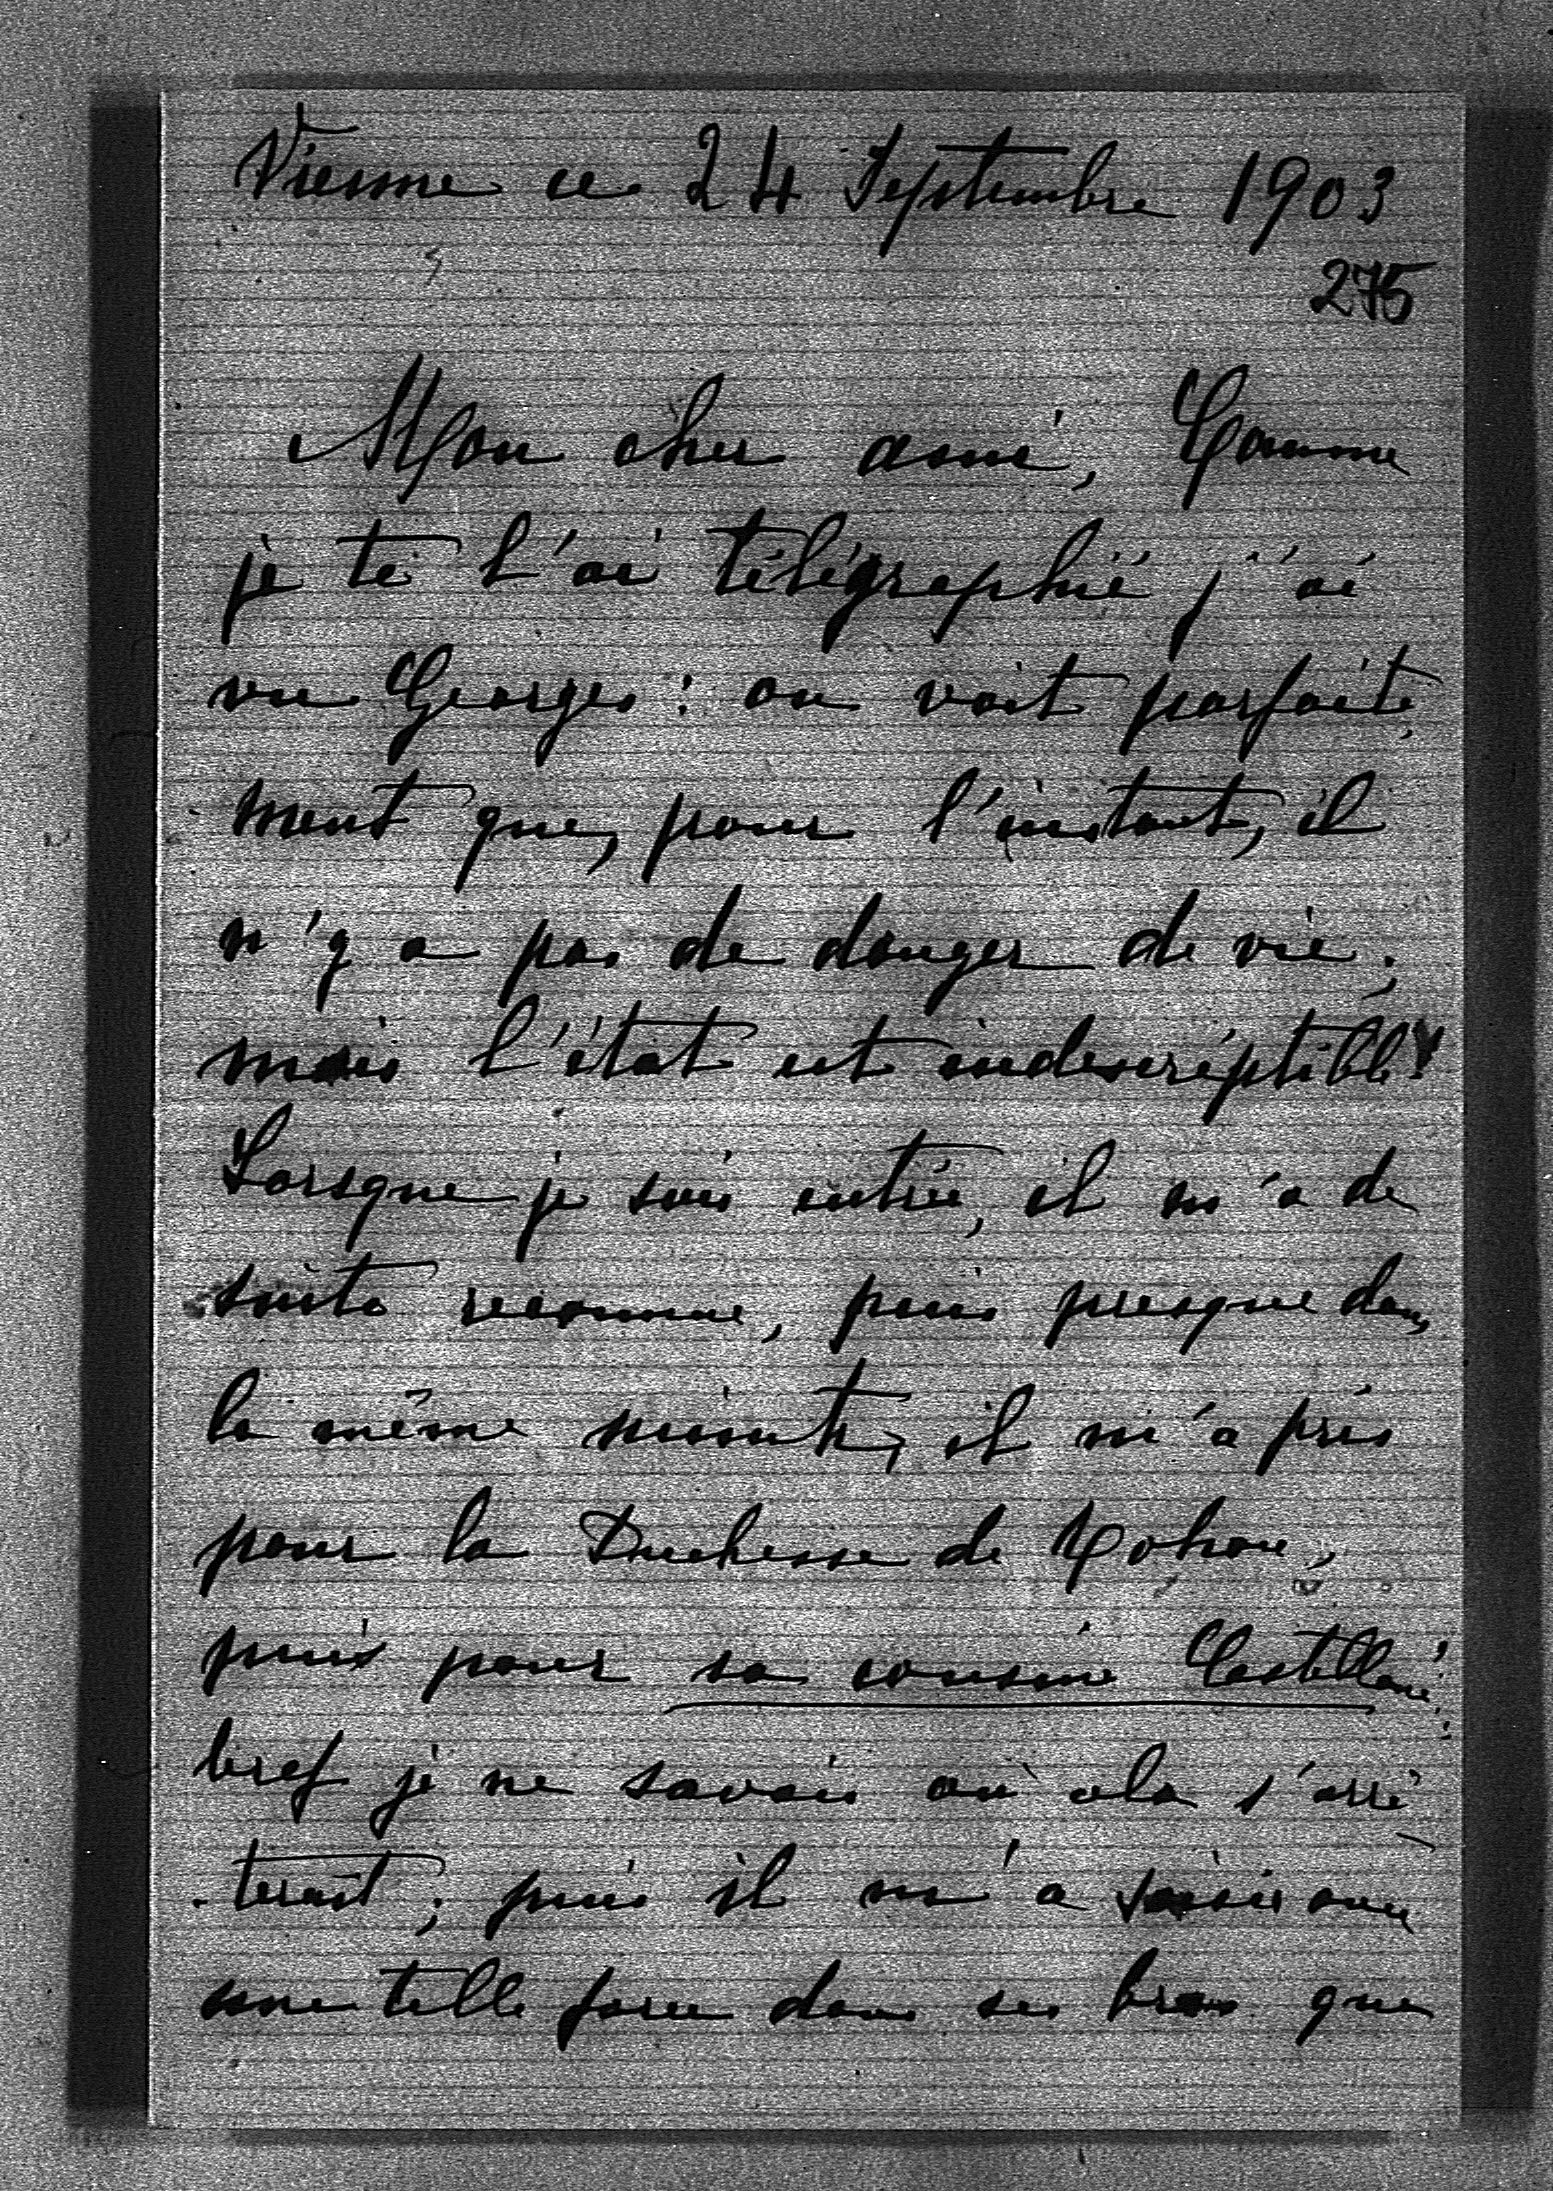 Vienne ce 24 Septembre 1903
275
Mon cher aimé, Comme
je te l'ai télégraphié j'ai
vu Georges: on voit parfaite
ment que, pour l'instant, il
n'y a pas de danger de vie;
mais l'état est indescriptible!
Lorsque je suis entrée, il m'a de
suite reconnue, puis presque dans
la même minute, il m'a pris
pour la Duchesse de Rohan,
puis pour sa cousine Castellane!
bref je ne savais où cela s'arrê
terait; puis il m'a saisie avec
une telle force dans ses bras que